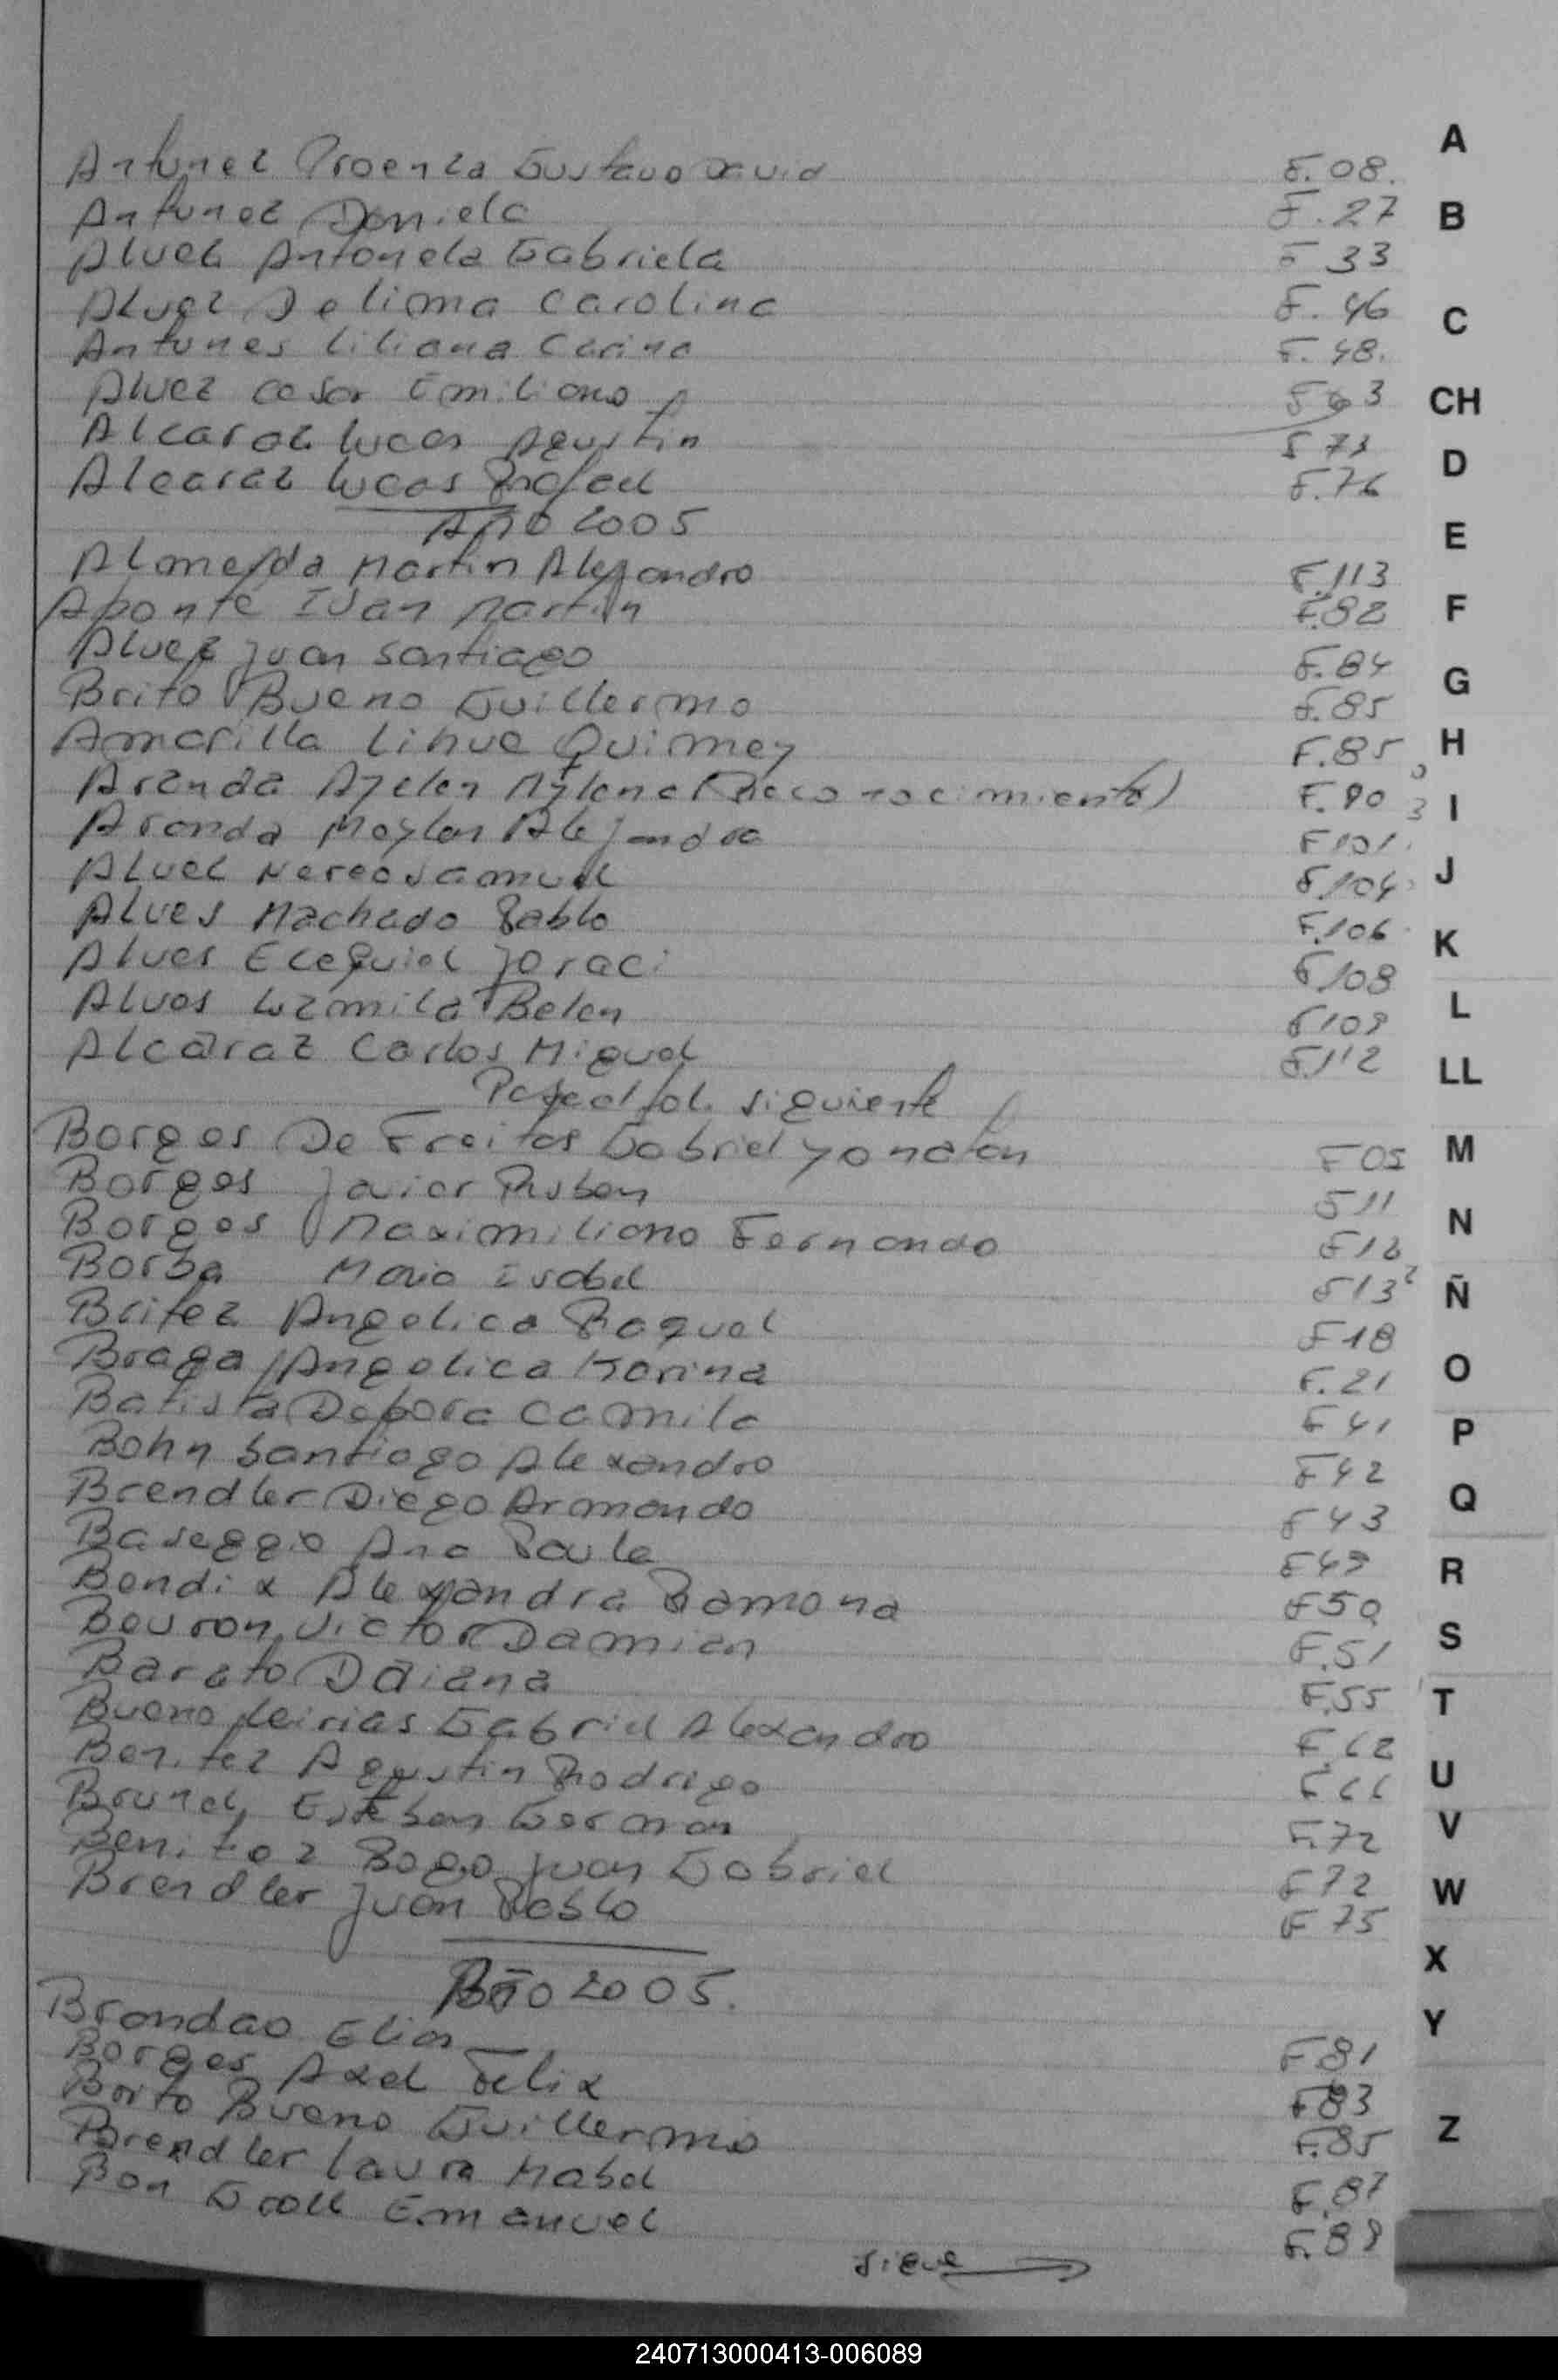 Antunez Proenza Gustavo David F. 08.
Antunez Daniela F. 27
Alvez Antonela Gabriela F 33
Alvez De lima Carolina F. 46
Antunes Liliana Carina F. 48.
Alvez Cesar Emiliano F 63
Alcaraz Lucas Agustin F 73
Alcaraz Lucas Rafael F. 76
Año 2005
Almeyda Martin Alejandro F.113
Aponte Ivan Martin F.82
Alvez Juan Santiago F. 84
Brito Bueno Guillermo F. 85
Amarilla Lihue Quimey F. 85
Aranda Ayelen Mylene (Reconocimiento) F. 90
Aranda Maylen Alejandra F 101.
Alvez Nereo Samuel F 104
Alves Machado Pablo F.106
Alves Ezequiel Joraci F 108
Alves Luzmila Belen F 109
Alcaraz Carlos Miguel F.112
Pase al fol. siguiente
Borges De Freitas Gabriel Yonatan F 05
Borges Javier Ruben F 11
Borges Maximiliano Fernando F 12
Borba Maria Isabel F 13
Britez Angelica Raquel F 18
Braga Angelica Karina F. 21
Batista Debora Camila F 41
Bohn Santiago Alexandro F 42
Brendler Diego Armando F 43
Baseggio Ana Paula F 49
Bendix Alexandra Ramona F 50
Beuron Victor Damian F. 51
Barato Daiana F.55
Bueno Leirias Gabriel Alexandro F. 62
Benitez Agustin Rodrigo F 66
Brunel Esteban German F.72
Benitez Bogo Juan Gabriel F 72
Brendler Juan Pablo F 75
Año 2005.
Brandao Elias F 81
Borges Axel Felix F 83
Brito Bueno Guillermo F.85
Brendler Laura Mabel F. 87
Bon Groll Emanuel F. 89
sigue
A
B
C
CH
D
E
F
G
H
I
J
K
L
LL
M
N
Ñ
O
P
Q
R
S
T
U
V
W
X
Y
Z
240713000413-006089